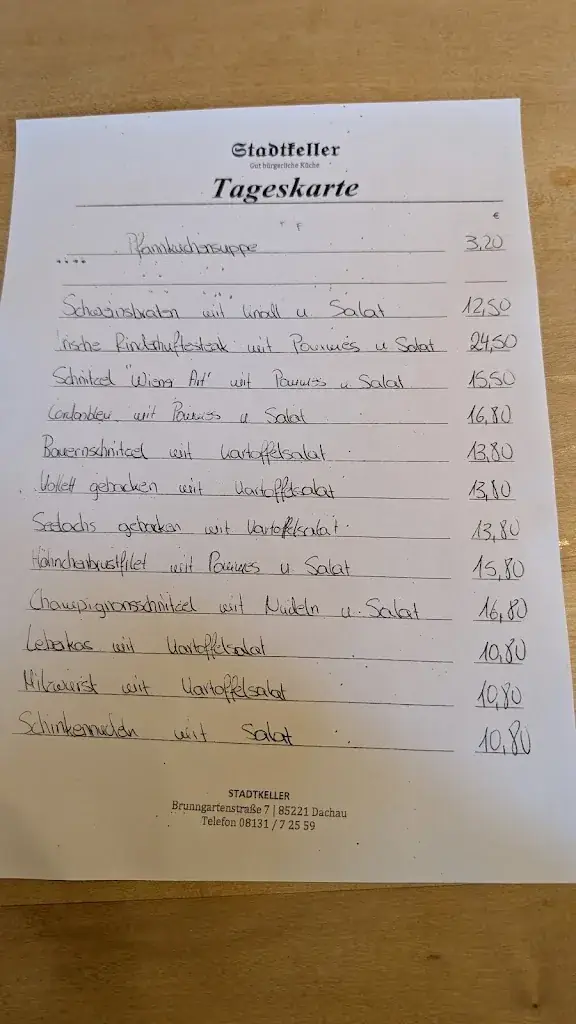 Stadtkeller
Gut bürgerliche Küche
Tageskarte
€
Pfannkuchensuppe 3,20
Schweinsbraten mit Knoll u. Salat 12,50
irische Rinderhuftesteak mit Pommes u. Salat 24,50
Schnitzel "Wiener Art" mit Pommes u. Salat 15,50
Cordonbleu mit Pommes u. Salat 16,80
Bauernschnitzel mit Kartoffelsalat 13,80
gebacken mit Kartoffelsalat 13,80
Seelachs gebacken mit Kartoffelsalat 13,80
Hähnchenbrustfilet mit Pommes u. Salat 15,80
Champignonschnitzel mit Nudeln u. Salat 16,80
Leberkas mit Kartoffelsalat 10,80
Milzwurst mit Kartoffelsalat 10,80
Schinkennudeln mit Salat 10,80
STADTKELLER
Brunngartenstraße 7 | 85221 Dachau
Telefon 08131 / 7 25 59